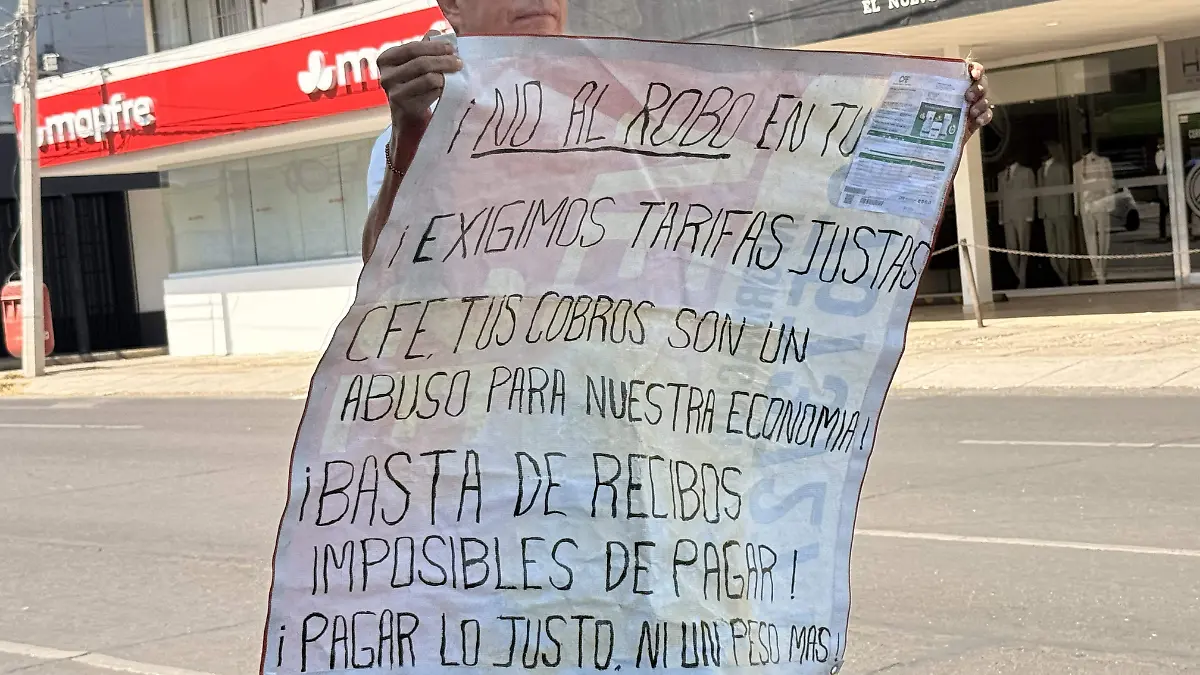 mapfre
EL NUEVO
¡NO AL ROBO EN TU
CFE
¡EXIGIMOS TARIFAS JUSTAS
CFE, TUS COBROS SON UN
ABUSO PARA NUESTRA ECONOMIA!
¡BASTA DE RECIBOS
IMPOSIBLES DE PAGAR!
¡PAGAR LO JUSTO, NI UN PESO MAS!